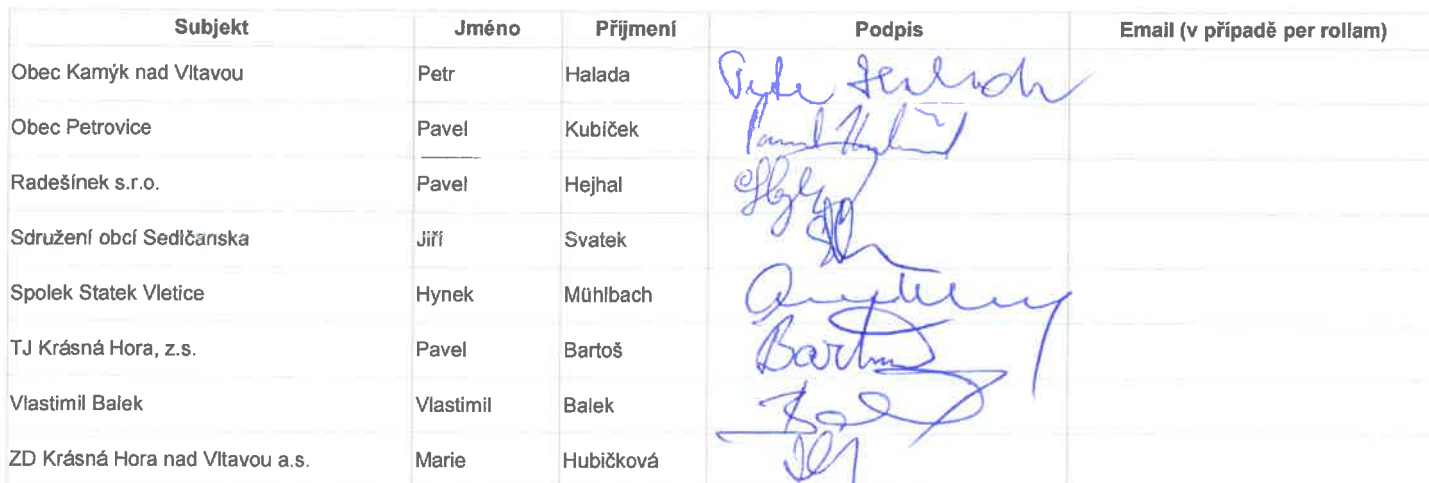 Subjekt Jméno Příjmení Podpis Email (v případě per rollam)
Obec Kamýk nad Vltavou Petr Halada
Obec Petrovice Pavel Kubíček
Radešínek s.r.o. Pavel Hejhal
Sdružení obcí Sedlčanska Jiří Svatek
Spolek Statek Vletice Hynek Mühlbach
TJ Krásná Hora, z.s. Pavel Bartoš
Vlastimil Balek Vlastimil Balek
ZD Krásná Hora nad Vltavou a.s. Marie Hubičková